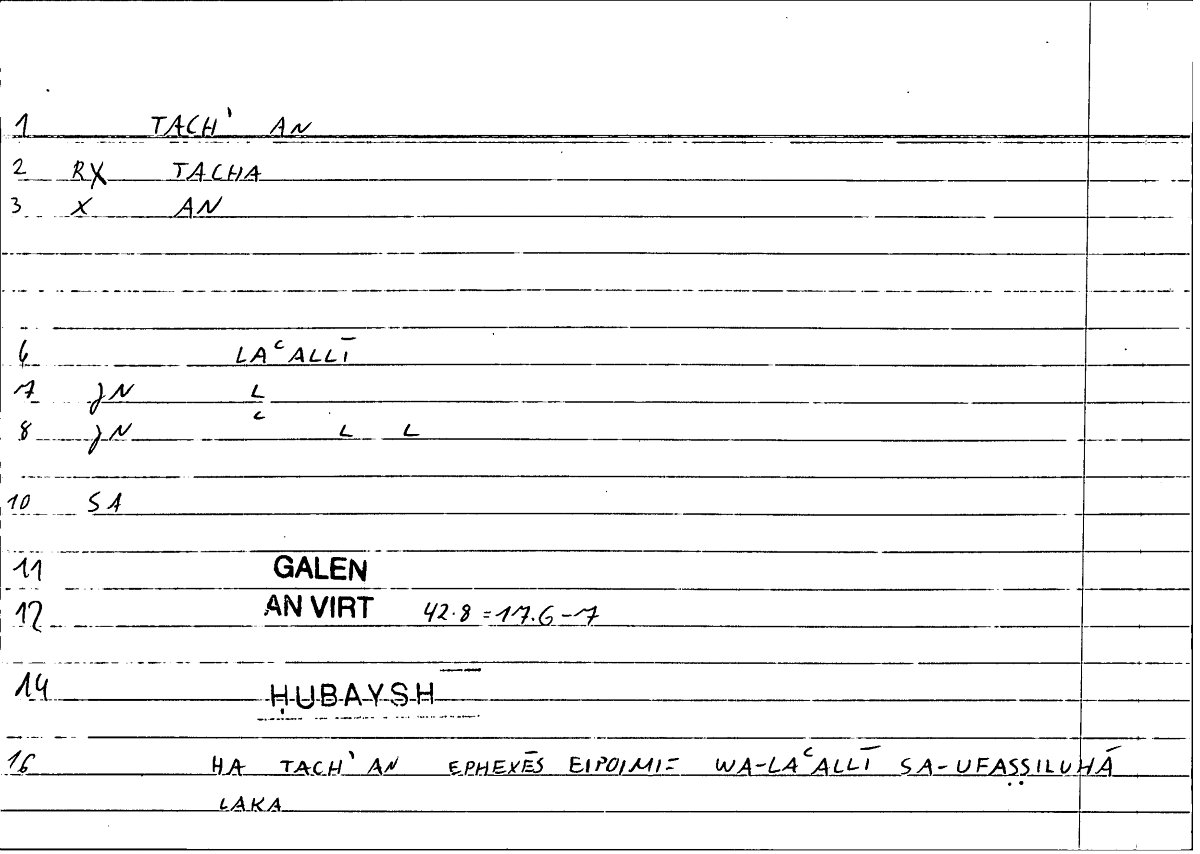 1 TACH' AN
2 RX TACHA
3 X AN
6 LAᶜALLĪ
7 JN L
8 JN ᶜ L L
10 SA
11 GALEN
12 AN VIRT 42.8 = 17.6-7
14 ḤUBAYSH
16 HA TACH' AN EPHEXĒS EIPOIMI= WA-LAᶜALLĪ SA-UFAṢṢILUHĀ
LAKA